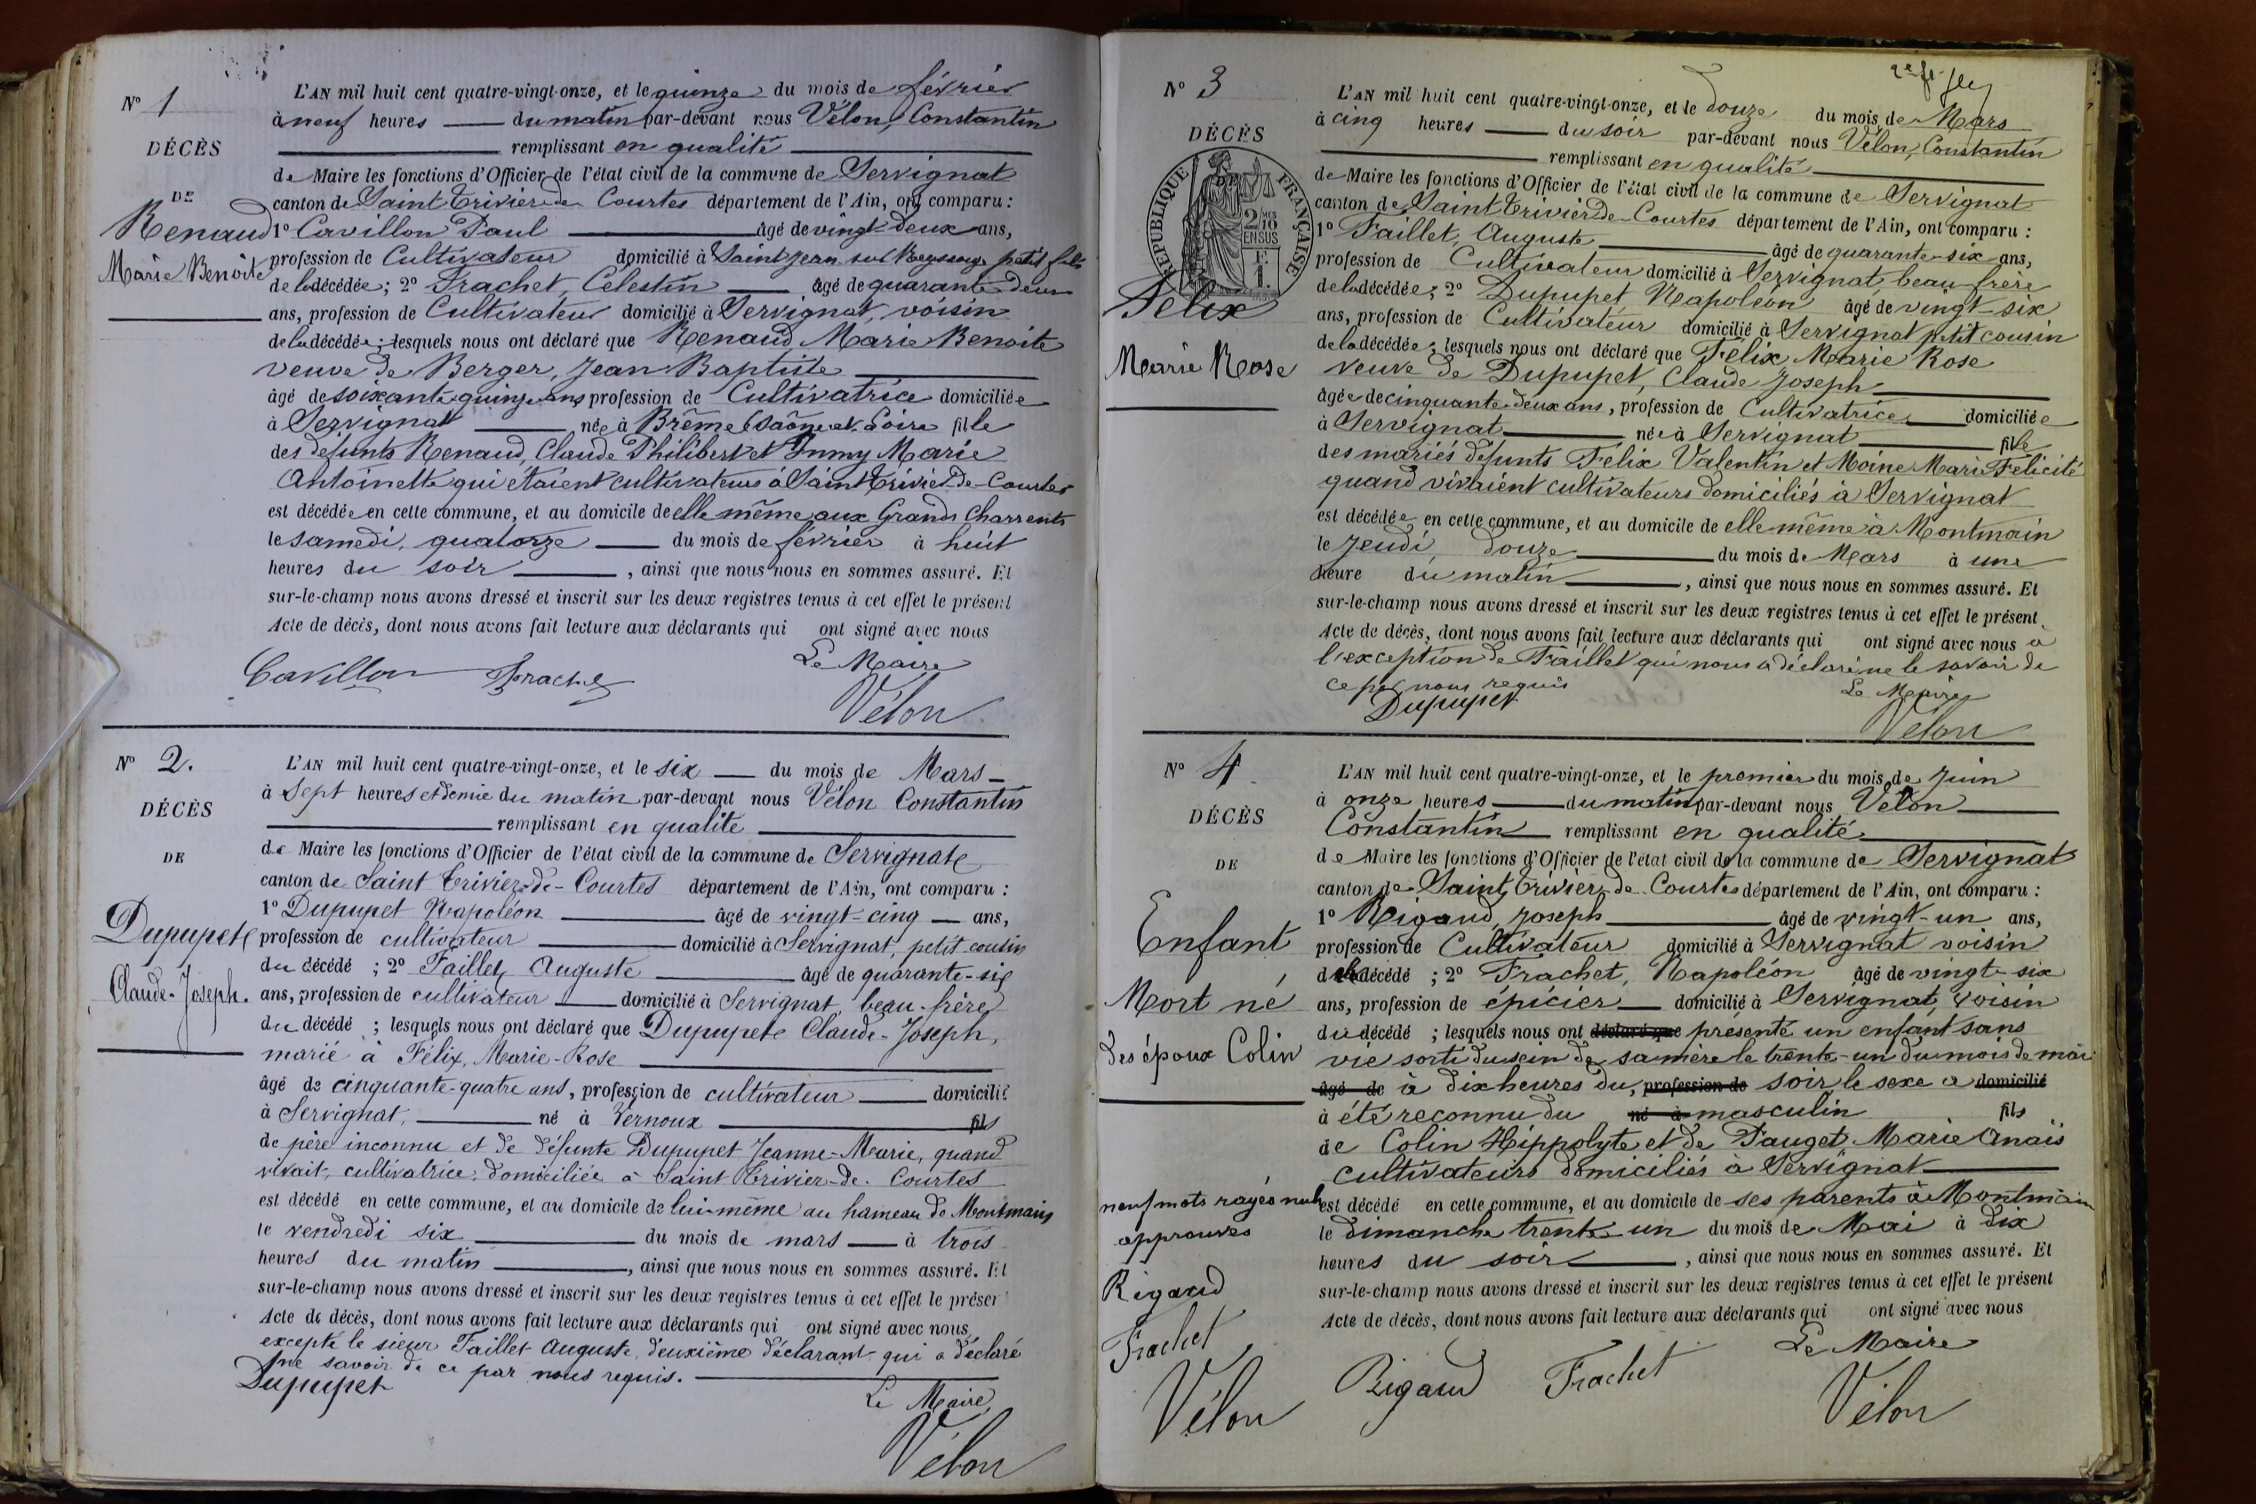 N° 1
DÉCÈS
DE
Renaud
Marie Benoîte
L'AN mil huit cent quatre-vingt-onze, et le quinze du mois de février
à neuf heures du matin par-devant nous Vélon, Constantin
remplissant en qualité
de Maire les fonctions d'Officier de l'état civil de la commune de Servignat
canton de Saint Trivier de Courtes département de l'Ain, ont comparu :
1° Cavillon Paul âgé de vingt deux ans,
profession de Cultivateur domicilié à Saint Jean sur Reyssouze petit fils
de la décédée ; 2° Frachet, Célestin âgé de quarante deux
ans, profession de Cultivateur domicilié à Servignat, voisin
de la décédée ; lesquels nous ont déclaré que Renaud Marie Benoite
veuve de Berger, Jean Baptiste
âgé de soixante quinze ans profession de Cultivatrice domiciliée
à Servignat née à Brême (Saône et Loire fille
des défunts Renaud, Claude Philibert et Marie
Antoinette qui étaient cultivateurs à Saint Trivier-de-Courtes
est décédée en cette commune, et au domicile de elle même aux Grands Charrents
le samedi, quatorze du mois de février à huit
heures du soir , ainsi que nous nous en sommes assuré. Et
sur-le-champ nous avons dressé et inscrit sur les deux registres tenus à cet effet le présent
Acte de décès, dont nous avons fait lecture aux déclarants qui ont signé avec nous
Le Maire
Cavillon Frachet
Vélon
N° 2.
DÉCÈS
DE
Dupupet
Claude-Joseph.
L'AN mil huit cent quatre-vingt-onze, et le six du mois de Mars
à sept heures et demie du matin par-devant nous Vélon Constantin
remplissant en qualité
de Maire les fonctions d'Officier de l'état civil de la commune de Servignat
canton de Saint Trivier-de-Courtes département de l'Ain, ont comparu :
1° Dupupet Napoléon âgé de vingt-cinq ans,
profession de cultivateur domicilié à Servignat, petit cousin
du décédé ; 2° Faillet, Auguste âgé de quarante-six
ans, profession de cultivateur domicilié à Servignat, beau-frère
du décédé ; lesquels nous ont déclaré que Dupupet Claude-Joseph,
marié à Félix, Marie-Rose
âgé de cinquante-quatre ans, profession de cultivateur domicilié
à Servignat, né à Vernoux fils
de père inconnu et de défunte Dupupet Jeanne-Marie, quand
vivait, cultivatrice, domiciliée à Saint Trivier-de-Courtes
est décédé en cette commune, et au domicile de lui-même au hameau de Montmain
le vendredi six du mois de mars à trois
heures du matin , ainsi que nous nous en sommes assuré. Et
sur-le-champ nous avons dressé et inscrit sur les deux registres tenus à cet effet le présent
Acte de décès, dont nous avons fait lecture aux déclarants qui ont signé avec nous
excepté le sieur Faillet Auguste, deuxième déclarant qui a déclaré
ne savoir de ce par nous requis.
Dupupet
Le Maire,
Vélon
N° 3
DÉCÈS
DE
RÉPUBLIQUE FRANÇAISE
2 10 MES EN SUS
F. 1.
Félix
Marie Rose
L'AN mil huit cent quatre-vingt-onze, et le douze du mois de Mars
à cinq heures du soir par-devant nous Vélon, Constantin
remplissant en qualité
de Maire les fonctions d'Officier de l'état civil de la commune de Servignat
canton de Saint Trivier de Courtes département de l'Ain, ont comparu :
1° Faillet, Auguste âgé de quarante-six ans,
profession de Cultivateur domicilié à Servignat, beau frère
de la décédée ; 2° Dupupet Napoléon âgé de vingt-six
ans, profession de Cultivateur domicilié à Servignat petit cousin
de la décédée ; lesquels nous ont déclaré que Félix Marie Rose
veuve de Dupupet, Claude Joseph
âgée de cinquante-deux ans, profession de Cultivatrice domiciliée
à Servignat née à Servignat fille
des mariés défunts Félix Valentin et Moine Marie Félicité
quand vivaient cultivateurs domiciliés à Servignat
est décédée en cette commune, et au domicile de elle même à Montmain
le Jeudi, douze du mois de Mars à une
heure du matin , ainsi que nous nous en sommes assuré. Et
sur-le-champ nous avons dressé et inscrit sur les deux registres tenus à cet effet le présent
Acte de décès, dont nous avons fait lecture aux déclarants qui ont signé avec nous à
l'exception de Faillet qui nous a déclaré ne le savoir de
ce par nous requis
Le Maire
Dupupet
Vélon
N° 4
DÉCÈS
DE
Enfant
Mort né
des époux Colin
neuf mots rayés nuls
approuvés
Rigaud
Frachet
Vélon
L'AN mil huit cent quatre-vingt-onze, et le premier du mois de Juin
à onze heures du matin par-devant nous Vélon
Constantin remplissant en qualité
de Maire les fonctions d'Officier de l'état civil de la commune de Servignat
canton de Saint Trivier de Courtes département de l'Ain, ont comparu :
1° Rigaud, Joseph âgé de vingt-un ans,
profession de Cultivateur domicilié à Servignat voisin
du décédé ; 2° Frachet, Napoléon âgé de vingt-six
ans, profession de épicier domicilié à Servignat, voisin
du décédé ; lesquels nous ont déclaré que présenté un enfant sans
vie sorti du sein de sa mère le trente-un du mois de mai
âgé de à dix heures du, profession de soir le sexe a domicilié
à été reconnu du né à masculin fils
de Colin Hippolyte et de Pauget Marie Anaïs
cultivateurs domiciliés à Servignat
est décédé en cette commune, et au domicile de ses parents à Montmain
le dimanche trente un du mois de Mai à dix
heures du soir , ainsi que nous nous en sommes assuré. Et
sur-le-champ nous avons dressé et inscrit sur les deux registres tenus à cet effet le présent
Acte de décès, dont nous avons fait lecture aux déclarants qui ont signé avec nous
Le Maire
Rigaud Frachet
Vélon